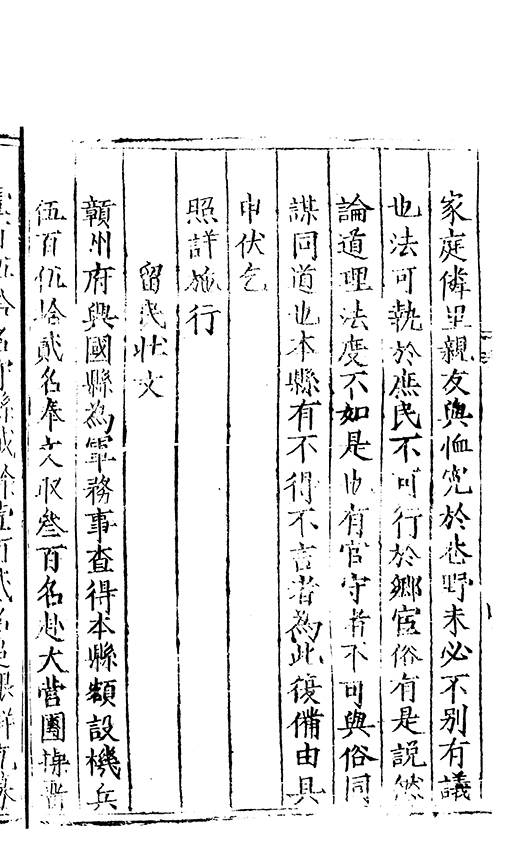 家庭隣里親友與恤兇於巷野未必不別有議
也法可執於庶民不可行於鄉宦俗有是說然
論道理法度不如是也有官守者不可與俗同
謀同道也本縣有不得不言者為此復備由具
申伏乞
照詳施行
留民壯文
贛州府興國縣為軍務事查得本縣額設機兵
伍百伍拾貳名奉文取叁百名赴大營團操